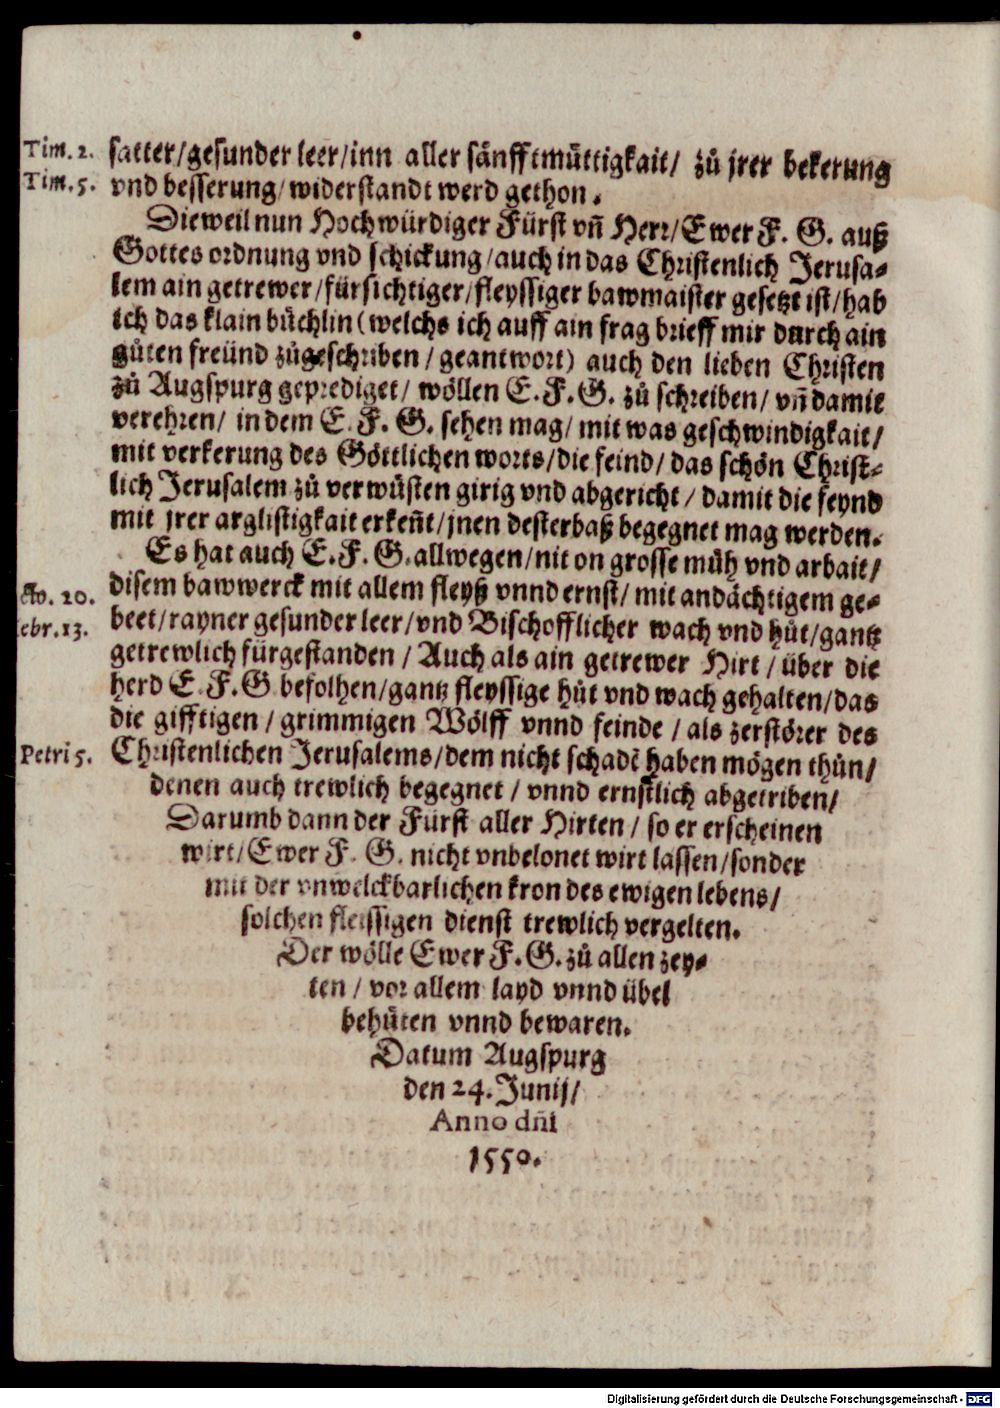 Tim. 2. satter/gesunder leer/inn aller sänfftmüttigkait/ zů jrer bekerung
Tim. 5. vnd besserung/widerstandt werd gethon.
Dieweil nun Hochwürdiger Fürst vn̄ Herr/Ewer F. G. auß
Gottes ordnung vnd schickung/auch in das Christenlich Jerusa-
lem ain getrewer/fürsichtiger/fleyssiger bawmaister gesetzt ist/hab
ich das klain büchlin (welchs ich auff ain frag brieff mir durch ain
gůten freünd zůgeschriben/geantwort) auch den lieben Christen
zů Augspurg geprediget/ wöllen E. F. G. zů schreiben/ vn̄ damit
verehren/ in dem E. F. G. sehen mag/ mit was geschwindigkait/
mit verkerung des Göttlichen worts/die feind/ das schön Christ-
lich Jerusalem zů verwüsten girig vnd abgericht/ damit die feynd
mit jrer arglistigkait erken̄t/jnen desterbaß begegnet mag werden.
Es hat auch E. F. G. allwegen/nit on grosse müh vnd arbait/
Ac. 20. disem bawwerck mit allem fleyß vnnd ernst/ mit andächtigem ge-
ebr. 13. beet/rayner gesunder leer/vnd Bischofflicher wach vnd hůt/gantz
getrewlich fürgestanden/ Auch als ain getrewer Hirt/ über die
herd E. F. G befolhen/gantz fleyssige hůt vnd wach gehalten/das
die gifftigen/ grimmigen Wölff vnnd feinde/ als zerstörer des
Petri 5. Christenlichen Jerusalems/dem nicht schadē haben mögen thůn/
denen auch trewlich begegnet/ vnnd ernstlich abgetriben/
Darumb dann der Fürst aller Hirten/ so er erscheinen
wirt/Ewer F. G. nicht vnbelonet wirt lassen/sonder
mit der vnwelckbarlichen kron des ewigen lebens/
solchen fleissigen dienst trewlich vergelten.
Der wölle Ewer F. G. zů allen zey-
ten/ vor allem layd vnnd übel
behůten vnnd bewaren.
Datum Augspurg
den 24. Junij/
Anno dn̄i
1550.
Digitalisierung gefördert durch die Deutsche Forschungsgemeinschaft - DFG